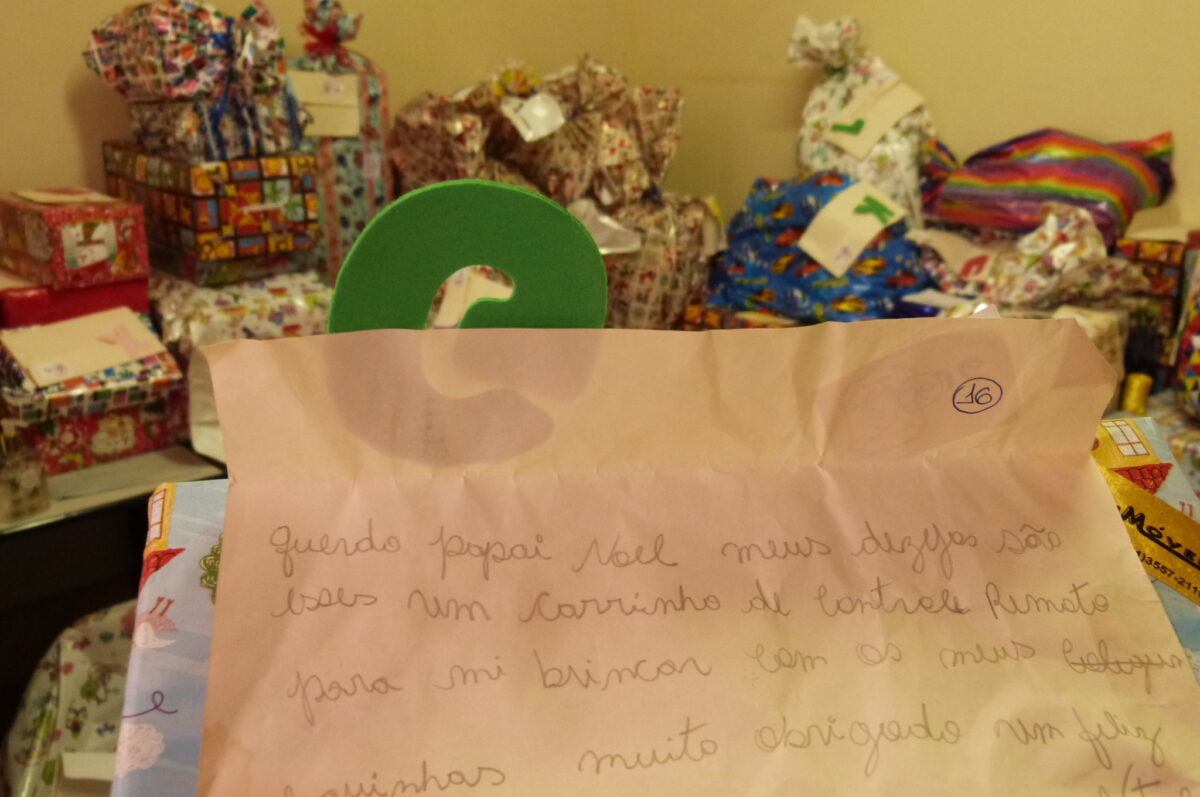 16
querdo papai Noel meus dezejos são
esses um carrinho de controle Remoto
para mi brincar com os meus
muito obrigado um feliz
Móve
)3557-211
L
K